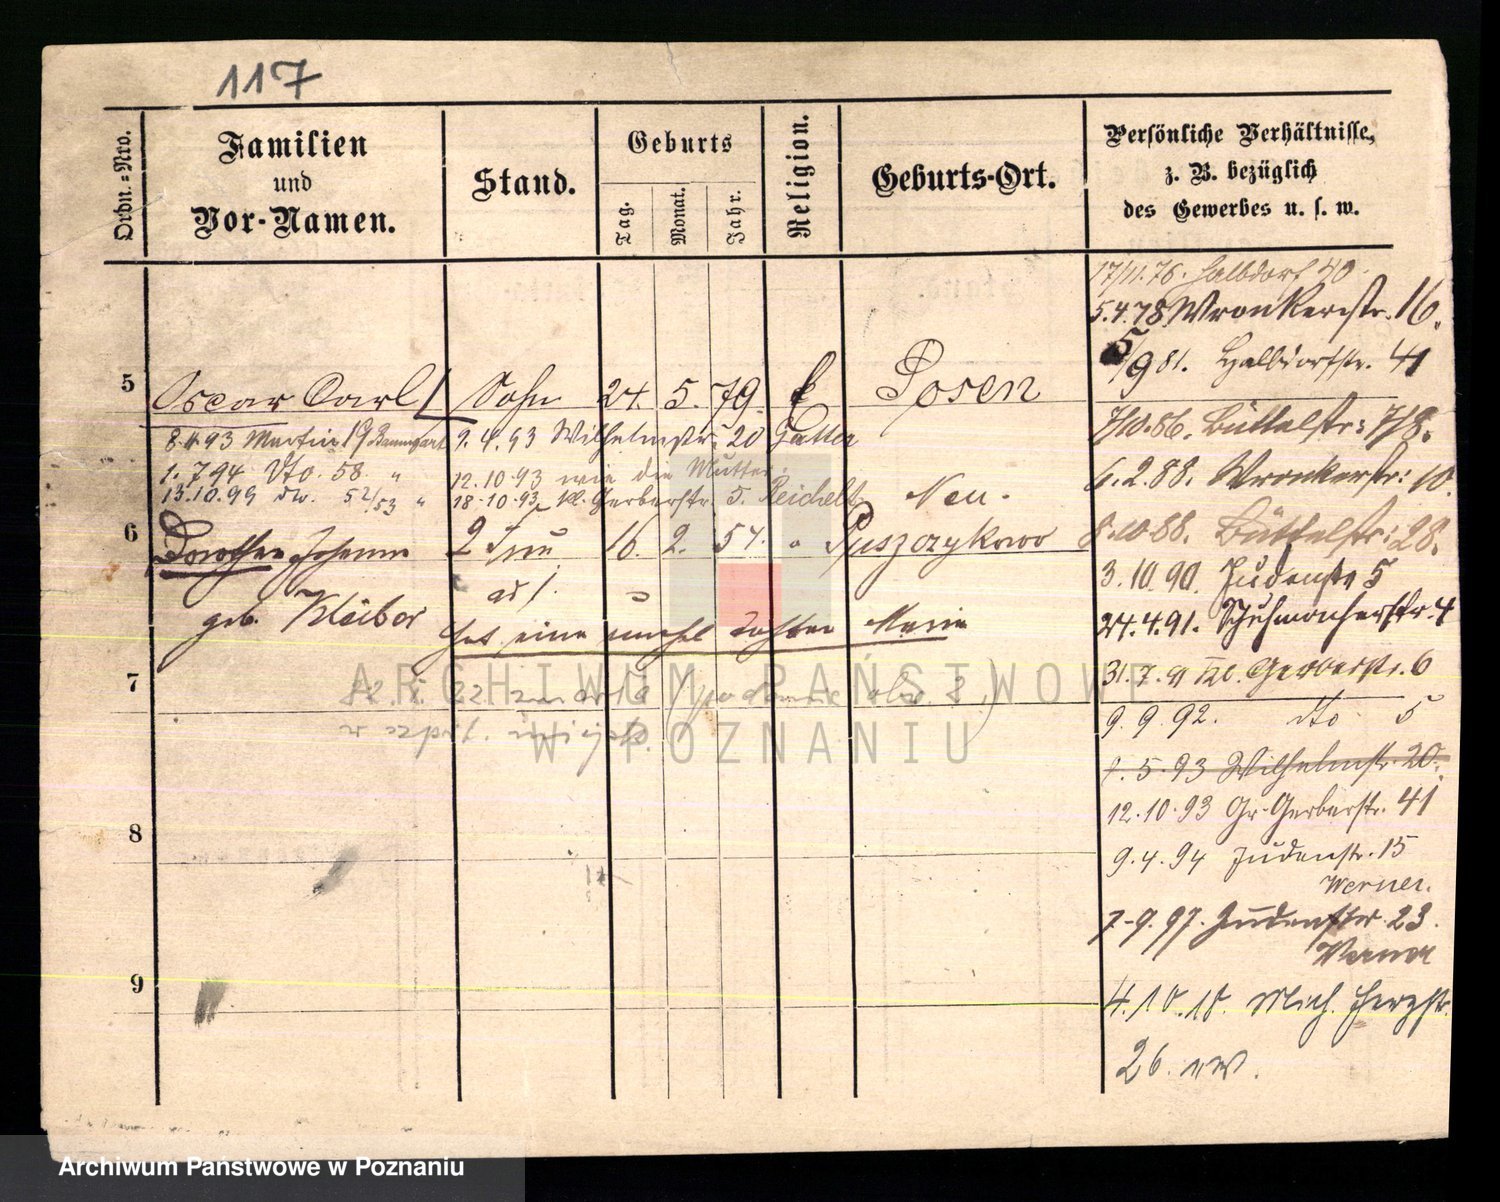 117
Ordn.=Nro.
Familien
und
Vor-Namen.
Stand.
Geburts
Tag.
Monat.
Jahr.
Religion.
Geburts-Ort.
Persönliche Verhältnisse,
z. B. bezüglich
des Gewerbes u. s. w.
17/11.76. Halbdorf 40
5.4.78 Wronkerstr. 16.
5/9 81. Halbdorfstr. 41
5 Oscar Carl Sohn 24. 5. 79. E Posen
8.4.93 Martin 19 Baumgart 9.4.93 Wilhelmstr. 20
7/10.86. Büttelstr: 7/8.
1.7.94 dto. 58 " 12.10.93 wie die Mutter.
13.10.99 dw. 52/53 " 18.10.93 kl. Gerberstr. 5. Reichelt
6.2.88. Wronkerstr: 10.
Neu-
6 Dorothea Johanna 2 Frau 16. 2. 54. " Puszczykowo
8.10.88. Büttelstr: 28.
3.10.90. Judenstr 5
geb. Kleiber
24.4.91. Schuhmacherstr. 4
hat eine unehel. Tochter Marie
31.7.91 kl. Gerberstr. 6
7
22. zmarła (podanie
w szpit.
9.9.92. dto 5
1.5.93 Wilhelmstr. 20.
12.10.93 Gr. Gerberstr. 41
8
9.4.94 Judenstr. 15
Werner.
7.9.97. Judenstr. 23.
Werner
9
4.10.18. Mich. Herzstr.
26. nw.
ARCHIWUM PAŃSTWOWE
W POZNANIU
Archiwum Państwowe w Poznaniu